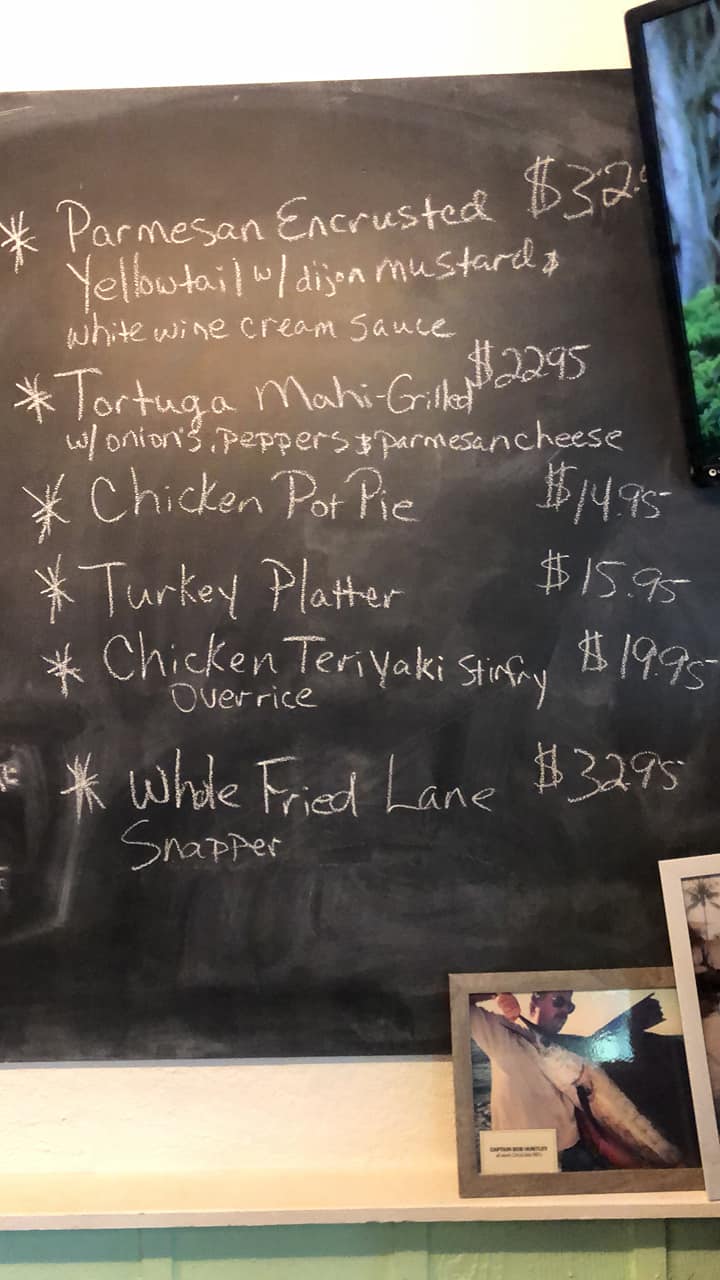 * Parmesan Encrusted $32.
Yellowtail w/ dijon mustard &
white wine cream sauce
* Tortuga Mahi-Grilled $2295
w/onion's, peppers & parmesan cheese
* Chicken Pot Pie $14.95
* Turkey Platter $15.95
* Chicken Teriyaki Stirfry $19.95
Over rice
* Whole Fried Lane $3295
Snapper
CAPTAIN BOB HUNTLEY